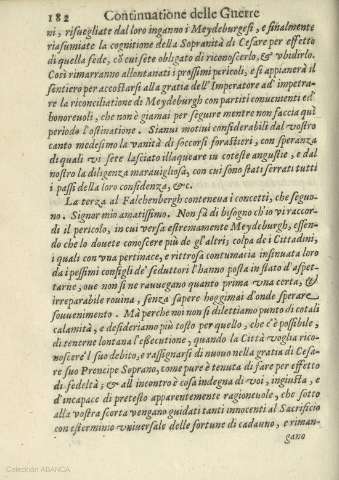 182 Continuatione delle Guerre
ni, risuegliate dal loro inganno i Meydeburgesi, e finalmente
riasumiate la cognitione della Sopranità di Cesare per effetto
di quella fede, cō cui sete obligato di riconoscerlo, & vbidirlo.
Così rimarranno allontanati i prossimi pericoli, e si appianerà il
sentiero per accostarsi alla gratia dell'Imperatore ad impetra-
re la riconciliatione di Meydeburgh con partiti conuenienti ed
honoreuoli, che non è giamai per seguire mentre non faccia quì
periodo l'ostinatione. Sianui motiui considerabili dal vostro
canto medesimo la vanità di soccorsi forastieri, con speranza
di quali vi sete lasciato illaqueare in coteste angustie, e dal
nostro la diligenza marauigliosa, con cui sono stati serrati tutti
i passi della loro confidenza, &c.
La terza al Falchenbergh conteneua i concetti, che seguo-
no. Signor mio amatissimo. Non fà di bisogno ch'io vi raccor-
di il pericolo, in cui versa estremamente Meydeburgh, essen-
do che lo douete conoscere più de gl'altri; colpa de i Cittadini,
i quali con vna pertinace, e ritrosa contumacia insinuata loro
da i pessimi consigli de' seduttori l'hanno posta in stato d'aspet-
tarne, oue non si ne rauuegano quanto prima vna certa, &
irreparabile rouina, senza sapere hoggimai d'onde sperare
souuenimento. Mà perche noi non si dilettiamo punto di cotali
calamità, e desideriamo più tosto per quello, che c'è possibile,
di tenerne lontana l'essecutione, quando la Città voglia rico-
noscere'l suo debito, e rassegnarsi di nuouo nella gratia di Cesa-
re suo Prencipe Soprano, come pure è tenuta di fare per effetto
di fedeltà; & all'incontro è cosa indegna di voi, ingiusta, e
d'incapace di pretesto apparentemente ragioneuole, che sotto
alla vostra scorta vengano guidati tanti innocenti al Sacrificio
con estermimio vniuersale delle fortune di cadauno, e riman-
gano
Colección ABANCA